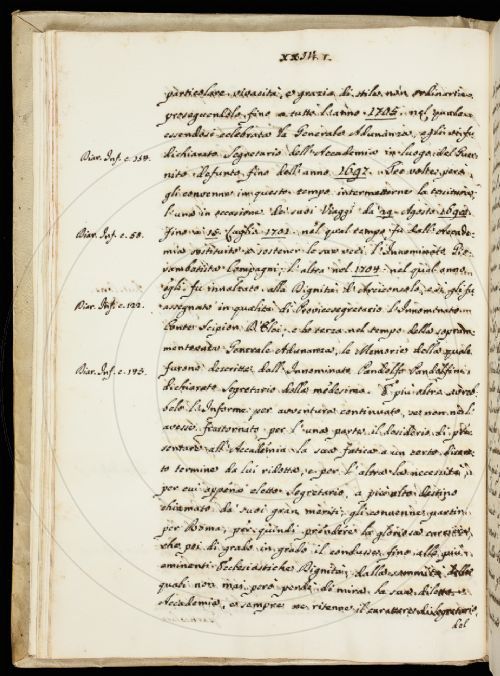 XXIV.
particolare vivacità, e grazia di stile non ordinaria
proseguendolo fino a tutto l'anno 1705. nel quale
essendosi celebrata la Generale Adunanza, egli vi fu
Diar. Inf. c. 158. dichiarato Segretario dell'Accademia in luogo del
defunto fino dell'anno 1697. Tre volte però
gli convenne in questo tempo intermetterne la
l'una in occasione de' suoi Viaggi da 29. Agosto
Diar. Inf. c. 58. fino a 15. Luglio 1701. nel qual tempo fu dall'Accade-
mia sostituito a sostener le sue veci l'Innominato
Compagni; l'altra nel 1704. nel qual anno
egli fu innalzato alla Dignità d'Arciconsolo, e gli fu
Diar. Inf. c. 122. assegnato in qualità di Provicesegretario l'Innominato
Conte Scipion; e la terza nel tempo della sopram-
mentovata Generale Adunanza, le Memorie della quale
Diar. Inf. c. 193. furono descritte dall'Innominato Pandolfo Pandolfini
dichiarato Segretario della medesima. E più oltre avreb-
belo l'Informe per avventura continuato, se non
avesse frastornato per l'una parte il desiderio di pre-
sentare all'Accademia la sua fatica a un certo
termine da lui ridotta, e per l'altra la necessità
per cui appena eletto Segretario, a più alto destino
chiamato da' suoi gran meriti gli convenne partire
per Roma, per quindi prendere la gloriosa carriera,
che poi di grado in grado il condusse fino alle più
eminenti Ecclesiastiche Dignità; dalla sommità delle
quali non mai però perdè di mira la sua diletta
Accademia, e sempre ne ritenne il carattere di Segretario,
del